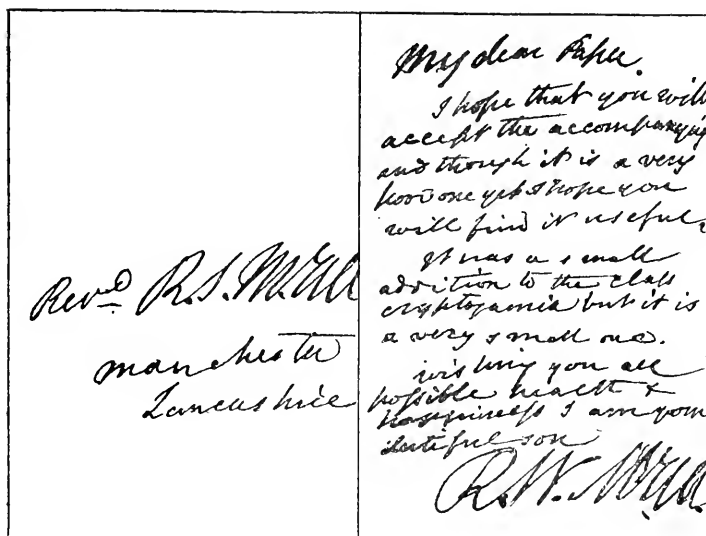 Revd R. S. McAll
Manchester
Lancashire
My dear Papa.
I hope that you will
accept the accompanying
and though it is a very
poor one yet I hope you
will find it useful,
It has a small
addition to the class
cryptogamia but it is
a very small one.
wishing you all
possible health &
happiness I am your
dutiful son
R. W. McAll.